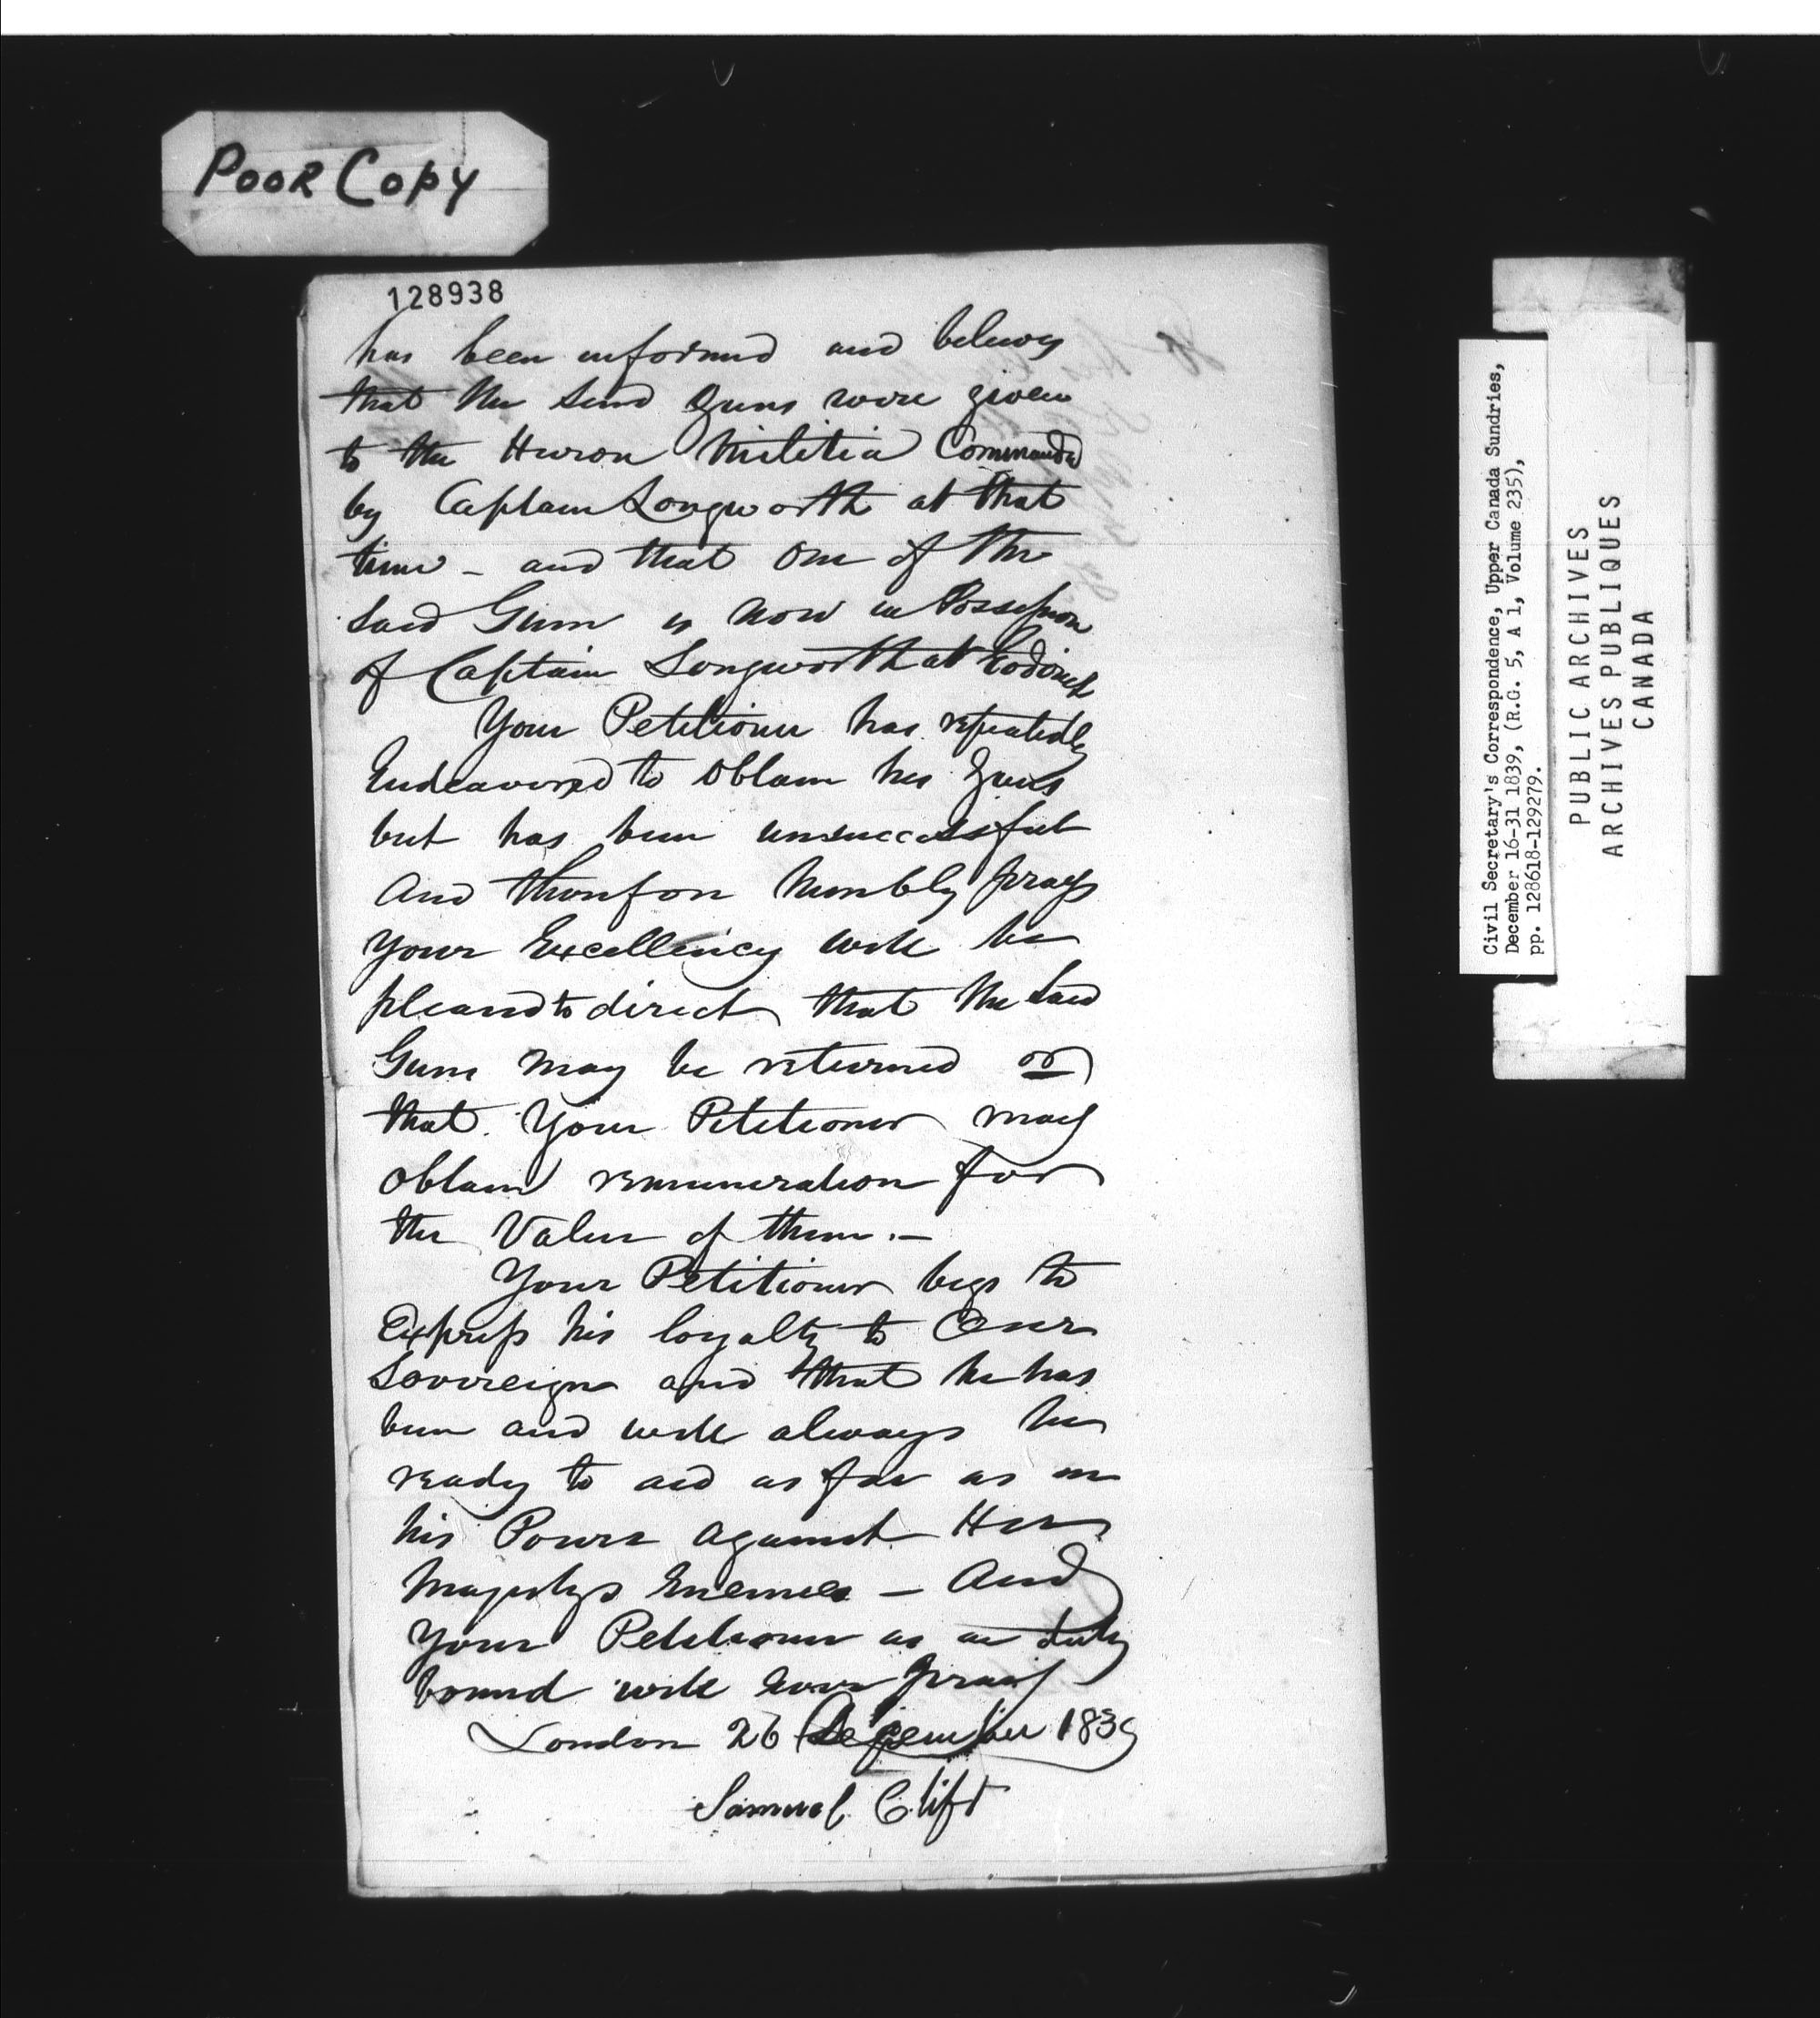 Poor Copy
128938
has been informed and believes
that the said Guns were given
to the Huron Militia Commanded
by Captain Longworth at that
time - and that one of the
said Guns is now in Possession
of Captain Longworth at Goderich
Your Petitioner has repeatedly
Endeavored to Obtain his Guns
but has been unsuccessful
And therefore humbly prays
Your Excellency will be
pleased to direct that the said
Guns may be returned or
that Your Petitioner may
obtain remuneration for
the Value of them.—
Your Petitioner begs to
Express his loyalty to Our
Sovereign and that he has
been and will always be
ready to aid as far as in
his Power against Her
Majestys Enemies — And
Your Petitioner as in duty
bound will ever pray
London 26 December 1839
Samuel Clift
Civil Secretary's Correspondence, Upper Canada Sundries,
December 16-31 1839, (R.G. 5, A 1, Volume 235),
pp. 128618-129279.
PUBLIC ARCHIVES
ARCHIVES PUBLIQUES
CANADA